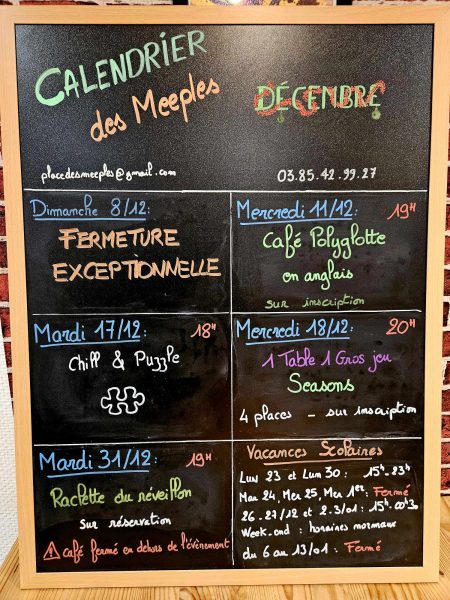 CALENDRIER
des Meeples
DÉCEMBRE
placedesmeeples@gmail.com
03.85.42.99.27
Dimanche 8/12:
FERMETURE
EXCEPTIONNELLE
Mercredi 11/12: 19H
Café Polyglotte
en anglais
sur inscription
Mardi 17/12: 18H
Chill & Puzzle
Mercredi 18/12: 20H
1 Table 1 Gros jeu
Seasons
4 places - sur inscription
Mardi 31/12: 19H
Raclette du réveillon
Sur réservation
⚠ café fermé en dehors de l'évènement
Vacances Scolaires
Lun 23 et Lun 30 : 15h-23h
Mar 24, Mer 25, Mer 1er: Fermé
26-27/12 et 2-3/01 : 15h-00h30
Week-end : horaires normaux
du 6 am 13/01 : Fermé